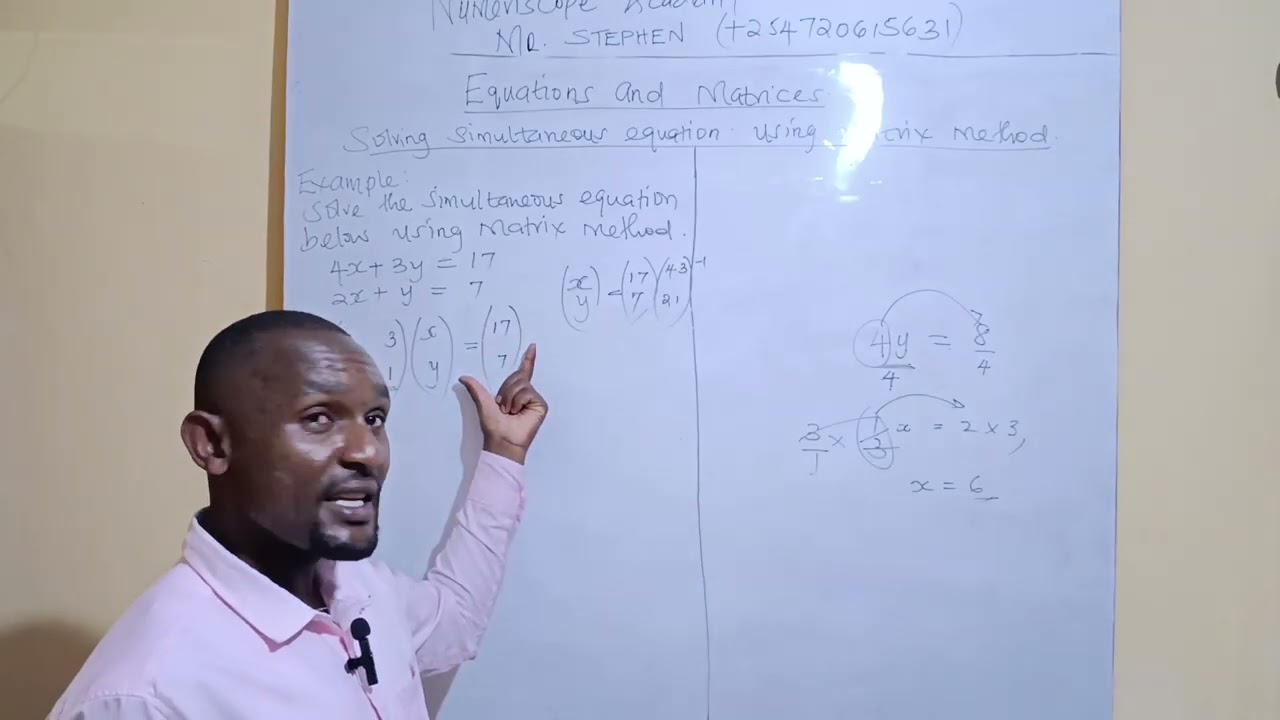 Numeriscope Academy
MR. STEPHEN (+254720615631)
Equations and Matrices
Solving simultaneous equation using method.
Example:
Solve the simultaneous equation
below using Matrix method.
4x + 3y = 17
2x + y = 7
3 x = 17
1 y 7
(x y) = (17 7) (4 3 2 1)⁻¹
4y = 8
4 4
3/1 × 1/3 x = 2 × 3,
x = 6